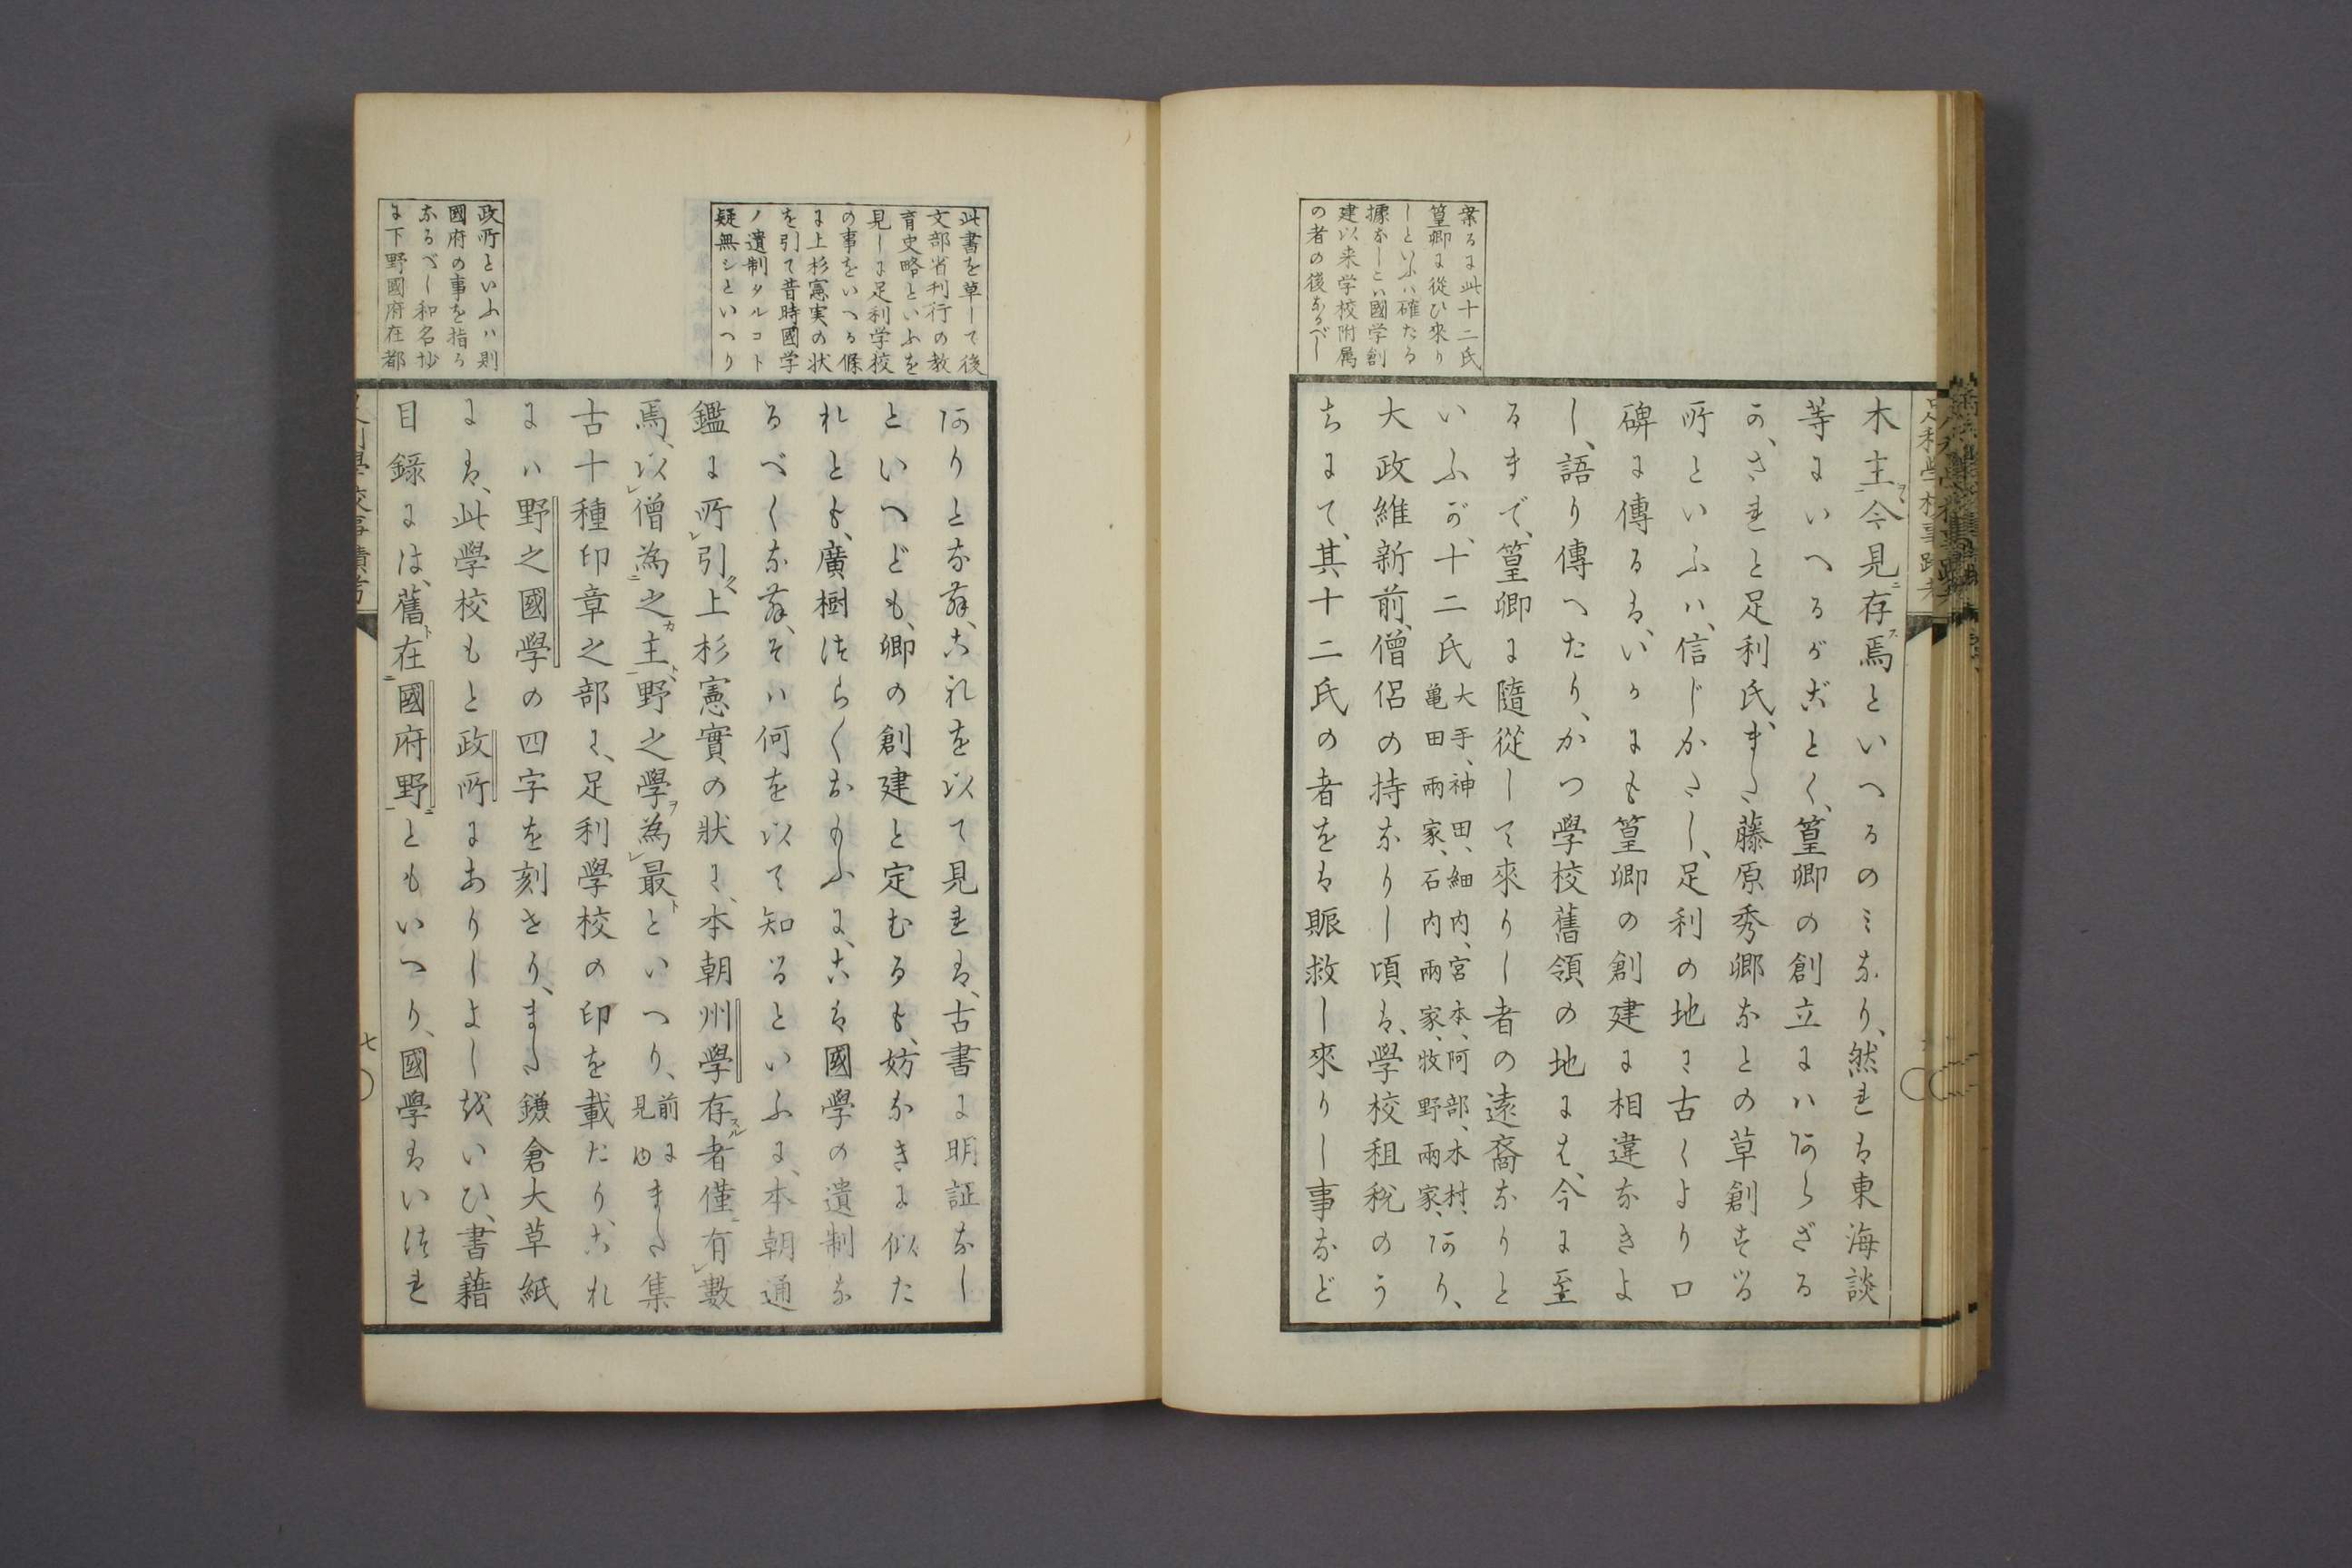 足利學校事蹟考
案るに此十二氏
篁卿に從ひ来り
しといふハ確たる
據なしこハ國学創
建以来学校附属
の者の後なるべし
木主、今見存焉といへるのミなり、然れは東海談
等にいへるがごとく、篁卿の創立にハあらざる
か、されと足利氏、また藤原秀郷なとの草創する
所といふハ、信じかたし、足利の地に古くより口
碑に傳るは、いかにも篁卿の創建に相違なきよ
し、語り傳へたり、かつ學校舊領の地には、今に至
るまで、篁卿に隨從して來りし者の遠裔なりと
いふが、十二氏大手、神田、細内、宮本、阿部、木村、亀田兩家、石内兩家、牧野兩家、あり、
大政維新前、僧侶の持なりし頃は、學校租税のう
ちにて、其十二氏の者をは賑救し來りし事など
此書を草して後
文部省刊行の教
育史略といふを
見しに足利学校
の事をいへる條
に上杉憲実の状
を引て昔時國学
ノ遺制タルコト
疑無シといへり
政所といふハ則
國府の事を指る
なるべし和名抄
に下野國府在都
ありとなむ、これを以て見れは、古書に明証なし
といへども、卿の創建と定むるも、妨なきに似た
れとも、廣樹つらくおもふに、こは國學の遺制な
るべくなむ、そハ何を以て知るといふに、本朝通
鑑に所引上杉憲實の狀に、本朝州學存者僅有數
焉、以僧為之主、野之學為最といへり、前に見ゆまた集
古十種印章之部に、足利學校の印を載たり、これ
にハ野之國學の四字を刻せり、また鎌倉大草紙
には、此學校もと政所にありしよしをいひ、書藉
目錄には、舊在國府野ともいへり、國學はいつれ
七